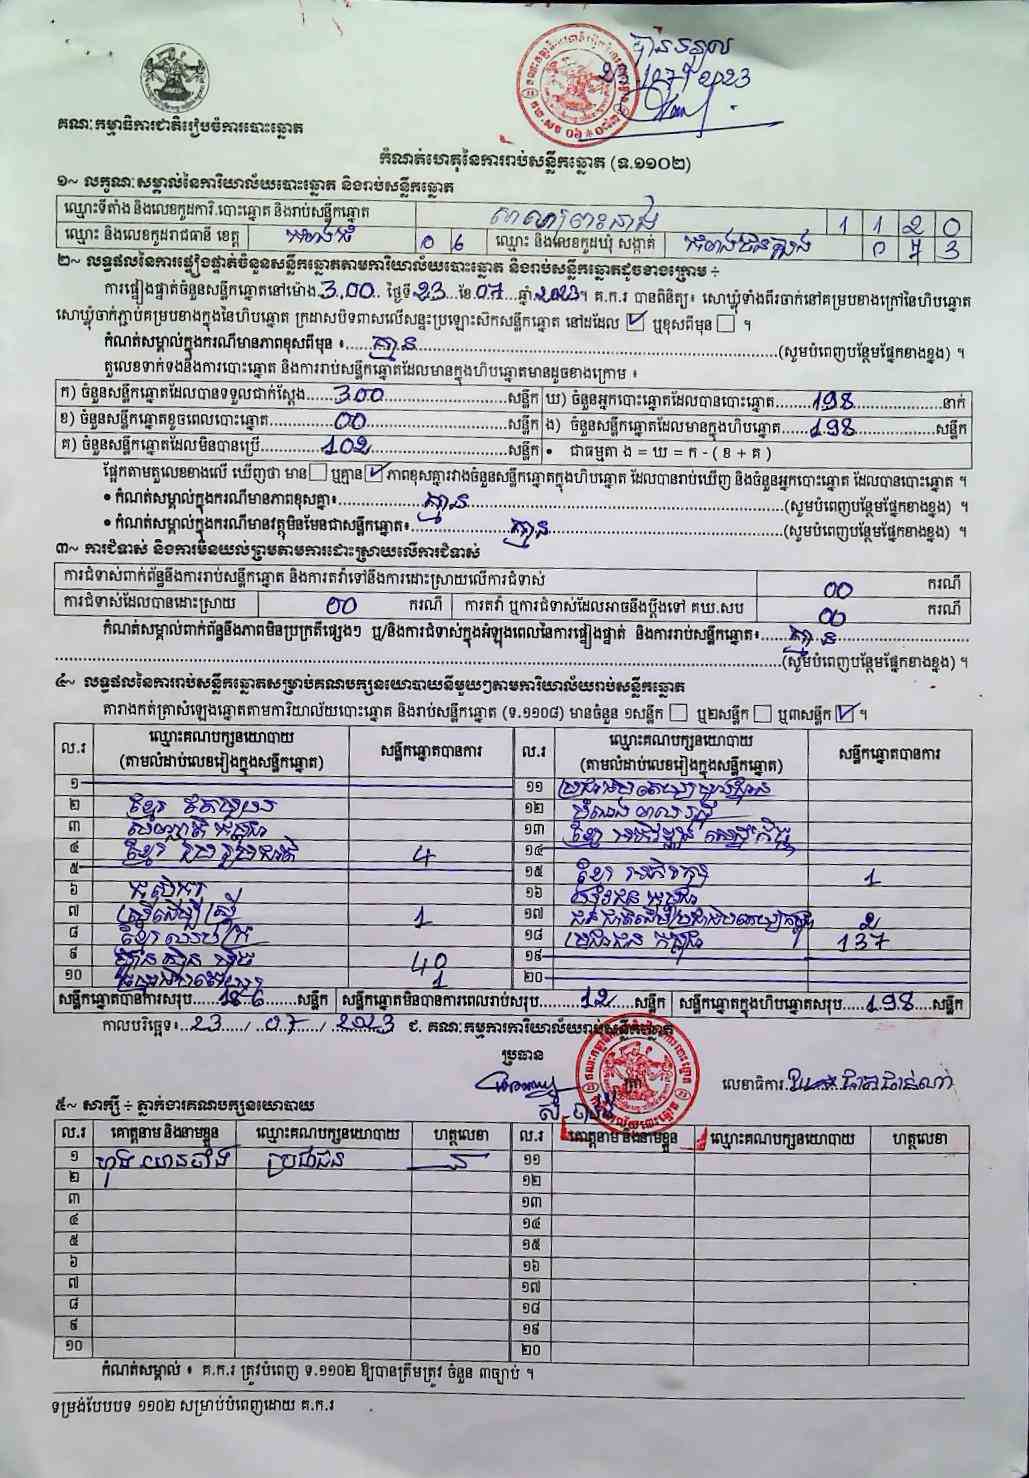 បានទទួល
គណៈកម្មាធិការជាតិរៀបចំការបោះឆ្នោត
កំណត់ហេតុនៃការរាប់សន្លឹកឆ្នោត (ទ.១១០២)
១~ លក្ខណៈសម្គាល់នៃការិយាល័យបោះឆ្នោត និងរាប់សន្លឹកឆ្នោត
ឈ្មោះទីតាំង និងលេខកូដការិ.បោះឆ្នោត និងរាប់សន្លឹកឆ្នោត 1 1 2 0
ឈ្មោះ និងលេខកូដរាជធានី ខេត្ត កំពង់ធំ 0 6 ឈ្មោះ និងលេខកូដឃុំ សង្កាត់ 0 7 3
២~ លទ្ធផលនៃការផ្ទៀងផ្ទាត់ចំនួនសន្លឹកឆ្នោតតាមការិយាល័យបោះឆ្នោត និងរាប់សន្លឹកឆ្នោតដូចខាងក្រោម ÷
ការផ្ទៀងផ្ទាត់ចំនួនសន្លឹកឆ្នោតនៅម៉ោង 3,00 ថ្ងៃទី 23 ខែ 07 ឆ្នាំ 2023។ គ.ក.រ បានពិនិត្យ៖ សោឃ្លុំទាំងពីរចាក់នៅគម្របខាងក្រៅនៃហិបឆ្នោត
សោឃ្លុំចាក់ភ្ជាប់គម្របខាងក្នុងនៃហិបឆ្នោត ក្រដាសបិទពាសលើសន្ទះប្រឡោះសិកសន្លឹកឆ្នោត នៅដដែល ☑ ឬខុសពីមុន ☐ ។
កំណត់សម្គាល់ក្នុងករណីមានភាពខុសពីមុន ៖ គ្មាន (សូមបំពេញបន្ថែមផ្នែកខាងខ្នង) ។
តួលេខទាក់ទងនឹងការបោះឆ្នោត និងការរាប់សន្លឹកឆ្នោតដែលមានក្នុងហិបឆ្នោតមានដូចខាងក្រោម ៖
ក) ចំនួនសន្លឹកឆ្នោតដែលបានទទួលជាក់ស្តែង 300 សន្លឹក ឃ) ចំនួនអ្នកបោះឆ្នោតដែលបានបោះឆ្នោត 198 នាក់
ខ) ចំនួនសន្លឹកឆ្នោតខូចពេលបោះឆ្នោត 00 សន្លឹក ង) ចំនួនសន្លឹកឆ្នោតដែលមានក្នុងហិបឆ្នោត 198 សន្លឹក
គ) ចំនួនសន្លឹកឆ្នោតដែលមិនបានប្រើ 102 សន្លឹក • ជាធម្មតា ង = ឃ = ក - ( ខ + គ )
ផ្អែកតាមតួលេខខាងលើ ឃើញថា មាន ☐ ឬគ្មាន ☑ ភាពខុសគ្នារវាងចំនួនសន្លឹកឆ្នោតក្នុងហិបឆ្នោត ដែលបានរាប់ឃើញ និងចំនួនអ្នកបោះឆ្នោត ដែលបានបោះឆ្នោត ។
• កំណត់សម្គាល់ក្នុងករណីមានភាពខុសគ្នា៖ គ្មាន (សូមបំពេញបន្ថែមផ្នែកខាងខ្នង) ។
• កំណត់សម្គាល់ក្នុងករណីមានវត្ថុមិនមែនជាសន្លឹកឆ្នោត៖ គ្មាន (សូមបំពេញបន្ថែមផ្នែកខាងខ្នង) ។
៣~ ការជំទាស់ និងការមិនយល់ព្រមតាមការដោះស្រាយលើការជំទាស់
ការជំទាស់ពាក់ព័ន្ធនឹងការរាប់សន្លឹកឆ្នោត និងការតវ៉ាទៅនឹងការដោះស្រាយលើការជំទាស់ 00 ករណី
ការជំទាស់ដែលបានដោះស្រាយ 00 ករណី ការតវ៉ា ឬការជំទាស់ដែលអាចនឹងប្តឹងទៅ គឃ.សប 00 ករណី
កំណត់សម្គាល់ពាក់ព័ន្ធនឹងភាពមិនប្រក្រតីផ្សេងៗ ឬ/និងការជំទាស់ក្នុងអំឡុងពេលនៃការផ្ទៀងផ្ទាត់ និងការរាប់សន្លឹកឆ្នោត៖ គ្មាន
(សូមបំពេញបន្ថែមផ្នែកខាងខ្នង) ។
៤~ លទ្ធផលនៃការរាប់សន្លឹកឆ្នោតសម្រាប់គណបក្សនយោបាយនីមួយៗតាមការិយាល័យរាប់សន្លឹកឆ្នោត
តារាងកត់ត្រាសំឡេងឆ្នោតតាមការិយាល័យបោះឆ្នោត និងរាប់សន្លឹកឆ្នោត (ទ.១១០៨) មានចំនួន ១សន្លឹក ☐ ឬ២សន្លឹក ☐ ឬ៣សន្លឹក ☑ ។
ល.រ ឈ្មោះគណបក្សនយោបាយ (តាមលំដាប់លេខរៀងក្នុងសន្លឹកឆ្នោត) សន្លឹកឆ្នោតបានការ ល.រ ឈ្មោះគណបក្សនយោបាយ (តាមលំដាប់លេខរៀងក្នុងសន្លឹកឆ្នោត) សន្លឹកឆ្នោតបានការ
១ ១១
២ ខ្មែរ ១២
៣ កម្ពុជា ១៣ ខ្មែរ អភិវឌ្ឍន៍ សេដ្ឋកិច្ច
៤ ខ្មែរ រួបរួមជាតិ 4 ១៤
៥ ១៥ ខ្មែរ 1
៦ កសិករ ១៦ កម្ពុជា
៧ ស្ត្រីដើម្បីស្ត្រី 1 ១៧ 2
៨ ខ្មែរ ១៨ ប្រជាជន កម្ពុជា 137
៩ 40 ១៩
១០ 1 ២០
សន្លឹកឆ្នោតបានការសរុប 186 សន្លឹក សន្លឹកឆ្នោតមិនបានការពេលរាប់សរុប 12 សន្លឹក សន្លឹកឆ្នោតក្នុងហិបឆ្នោតសរុប 198 សន្លឹក
កាលបរិច្ឆេទ៖ 23 / 07 / 2023 ជ. គណៈកម្មការការិយាល័យរាប់សន្លឹកឆ្នោត
ប្រធាន
លេខាធិការ
៥~ សាក្សី ÷ ភ្នាក់ងារគណបក្សនយោបាយ
ល.រ គោត្តនាម និងនាមខ្លួន ឈ្មោះគណបក្សនយោបាយ ហត្ថលេខា ល.រ គោត្តនាម និងនាមខ្លួន ឈ្មោះគណបក្សនយោបាយ ហត្ថលេខា
១ ប្រជាជន ១១
២ ១២
៣ ១៣
៤ ១៤
៥ ១៥
៦ ១៦
៧ ១៧
៨ ១៨
៩ ១៩
១០ ២០
កំណត់សម្គាល់ ៖ គ.ក.រ ត្រូវបំពេញ ទ.១១០២ ឱ្យបានត្រឹមត្រូវ ចំនួន ៣ច្បាប់ ។
ទម្រង់បែបបទ ១១០២ សម្រាប់បំពេញដោយ គ.ក.រ